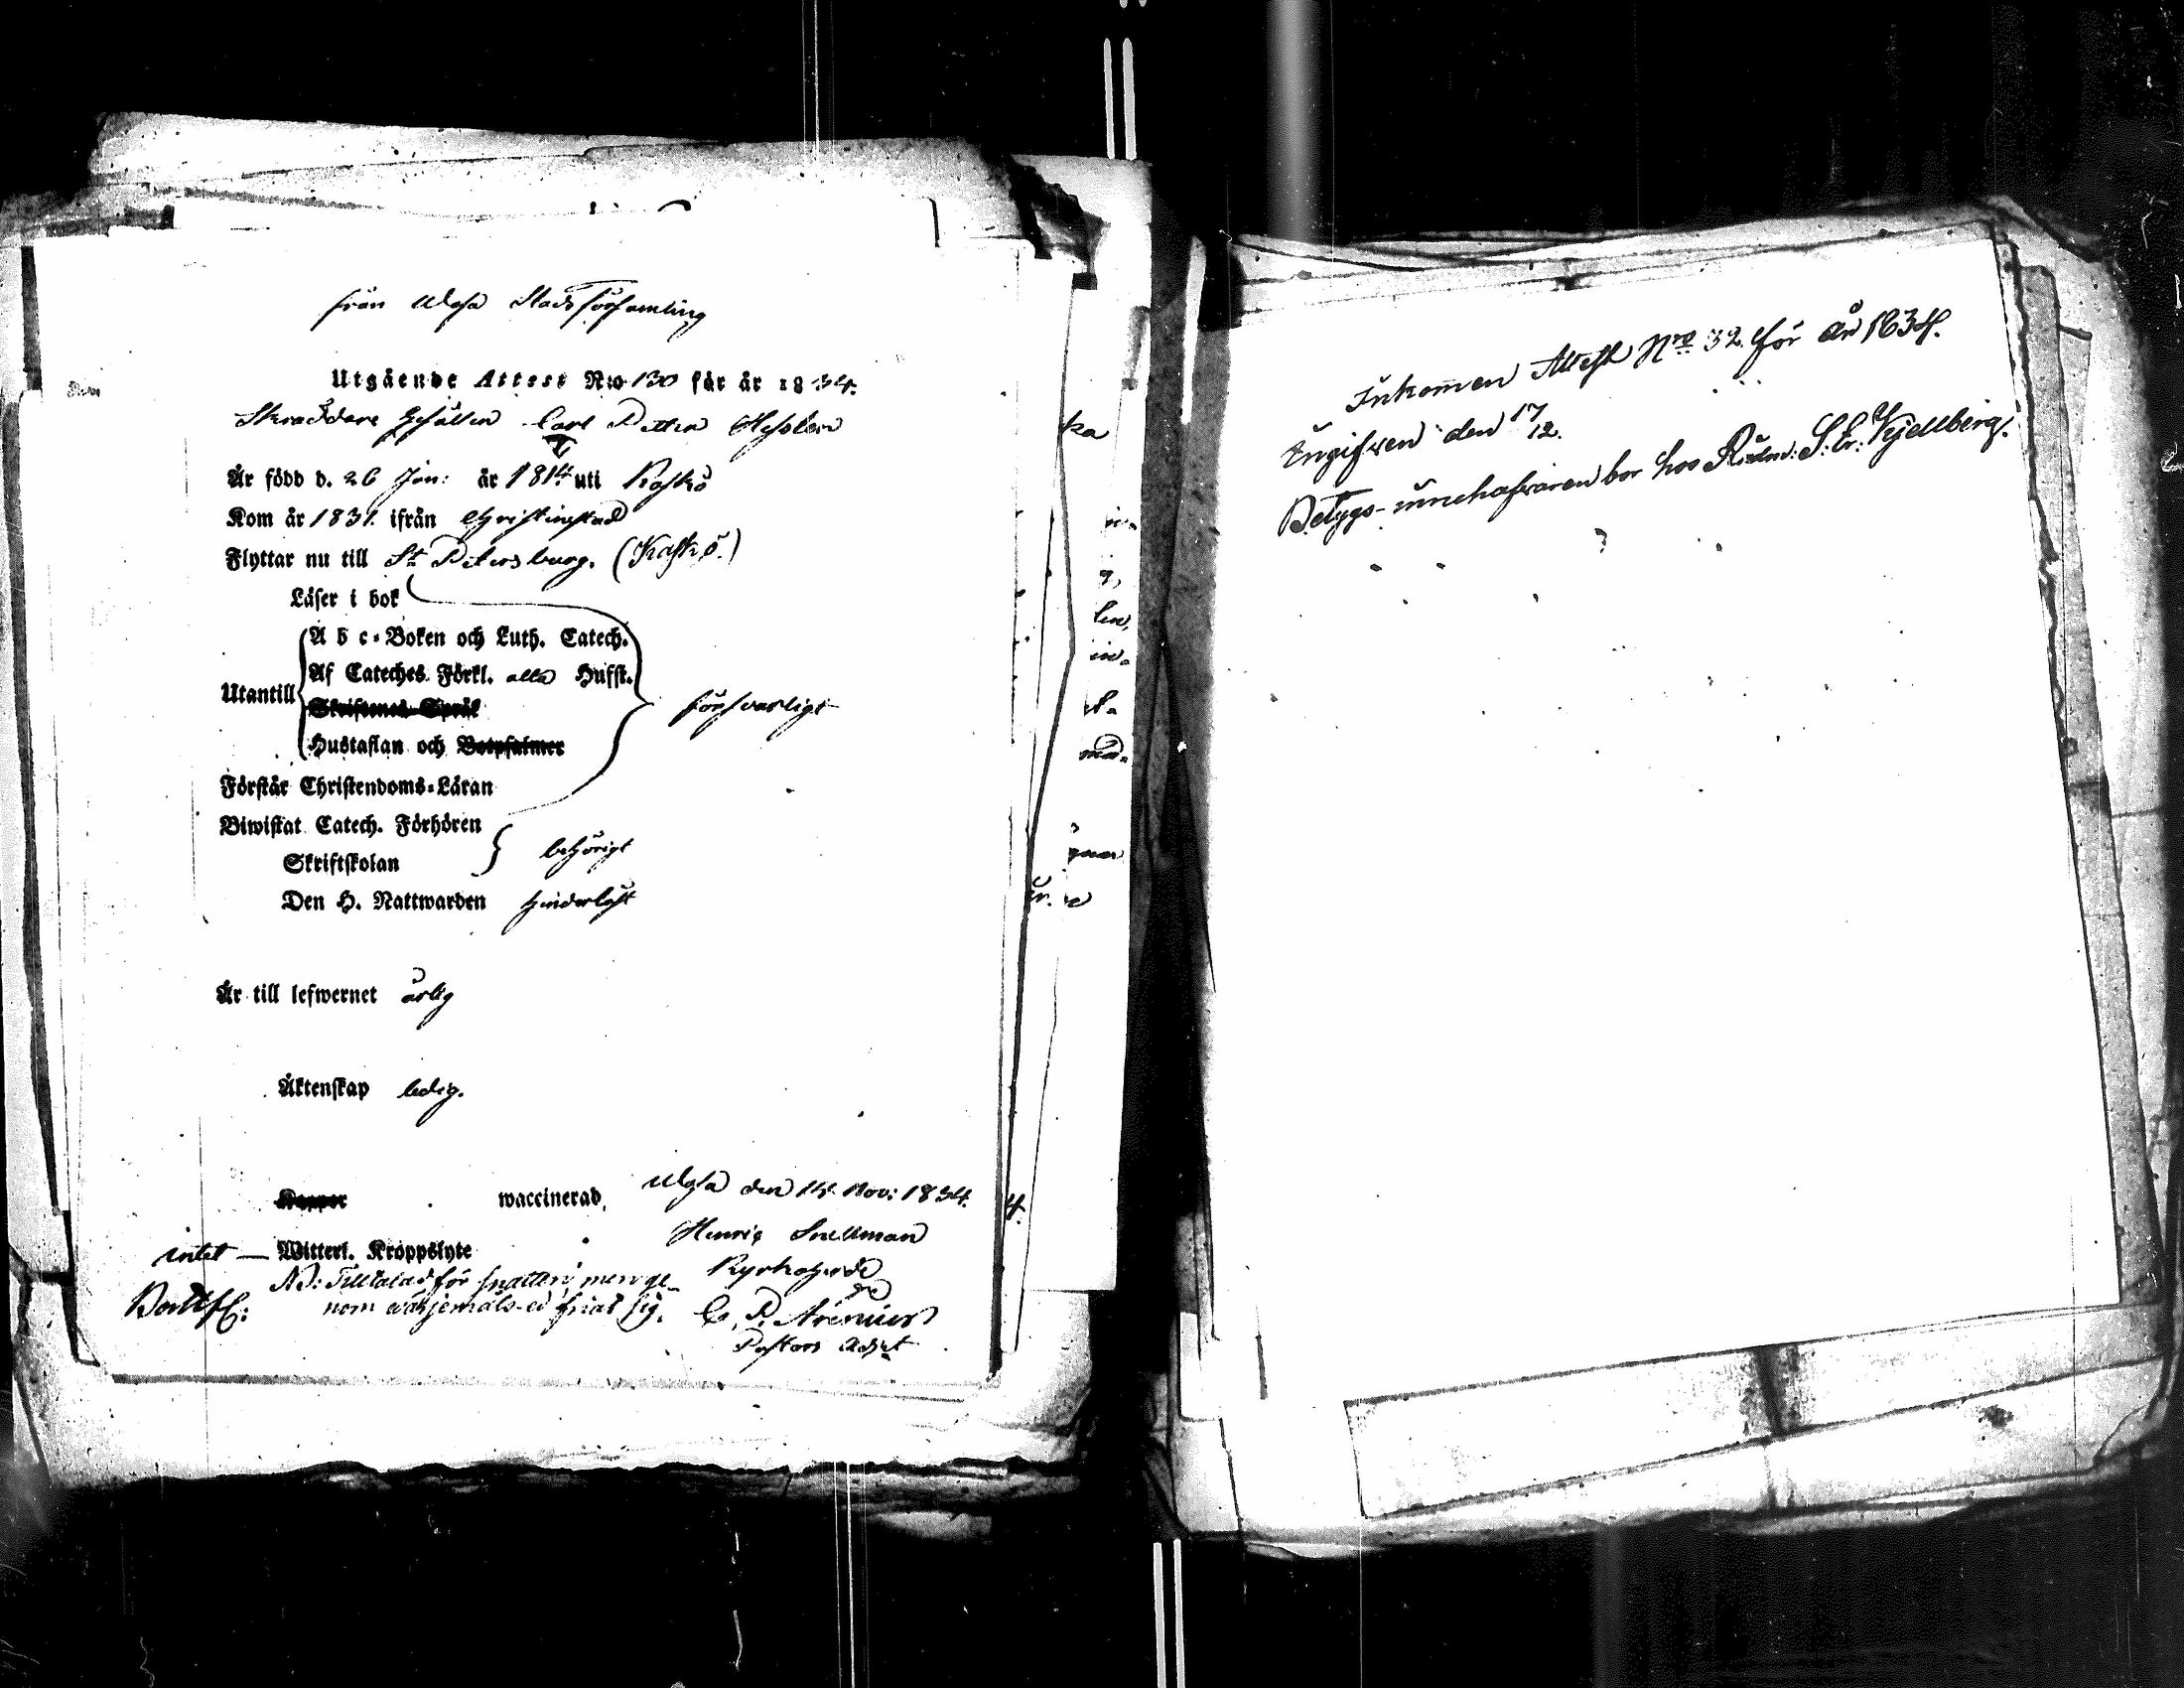 från Wasa Stads församling
Utgående Attest No 130 för år 1834.
Skräddare Gesällen Carl Petter Hessler
Är född d. 26 Jan: år 1814 uti Kaskö
Kom år 1831. ifrån Christinestad
Flyttar nu till St Petersburg. (Kaskö.)
Läser i bok
A b c-Boken och Luth. Catech.
Af Cateches Förkl. alla Hufst.
Utantill
försvarligt
Skriftenes Språk
Hustaflan och Botpsalmer
Förstår Christendoms-Läran
Biwistat Catech. Förhören
behörigt
Skriftskolan
Den H. Nattwarden hinderlöst
Är till lefwernet ärlig
Äktenskap ledig.
Wasa den 14 Nov: 1834.
Koppor waccinerad,
Henric Snellman
intet — Witterl. Kroppslyte
Kyrkoherde
NB: Tilltalad för snatteri, men ge-
nom värjemåls-ed friat sig.
C. P. Arenius
Pastors Adjct
Inkommen Attest Nro 32 för år 1834.
Ingifven den 17/12.
Betygs-innehafvaren bor hos Rådm: S. Er. Kjellberg.